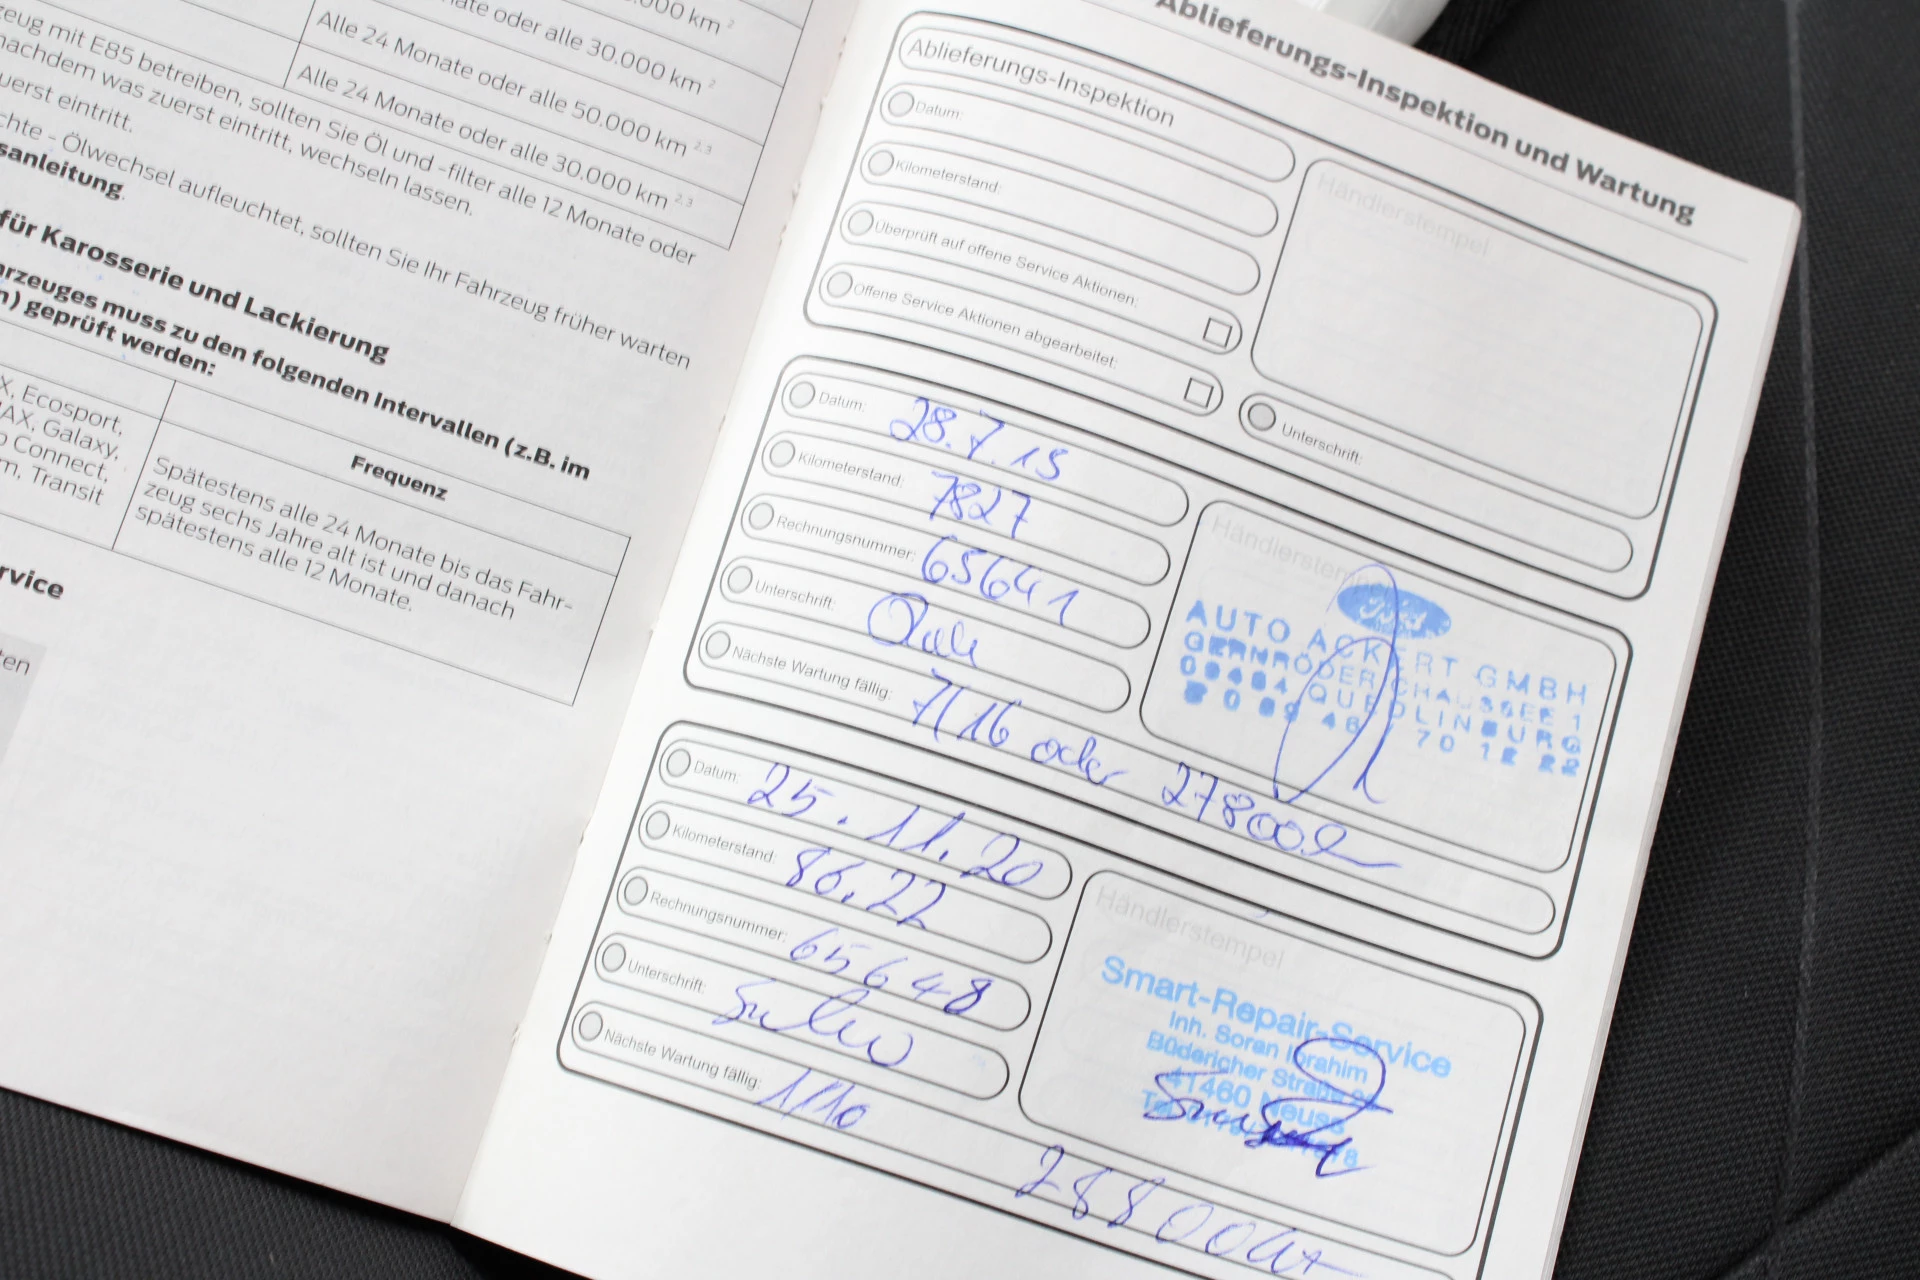 .000 km ²
nate oder alle 30.000 km ²
Alle 24 Monate oder alle 50.000 km ²,³
Alle 24 Monate oder alle 30.000 km ²,³
zeug mit E85 betreiben, sollten Sie Öl und -filter alle 12 Monate oder
nachdem was zuerst eintritt, wechseln lassen.
uerst eintritt.
chte - Ölwechsel aufleuchtet, sollten Sie Ihr Fahrzeug früher warten
sanleitung.
für Karosserie und Lackierung
hrzeuges muss zu den folgenden Intervallen (z.B. im
n) geprüft werden:
Frequenz
X, Ecosport,
MAX, Galaxy,
o Connect,
m, Transit
Spätestens alle 24 Monate bis das Fahr-
zeug sechs Jahre alt ist und danach
spätestens alle 12 Monate.
rvice
ten
Ablieferungs-Inspektion und Wartung
Ablieferungs-Inspektion
Datum:
Kilometerstand:
Überprüft auf offene Service Aktionen:
Offene Service Aktionen abgearbeitet:
Händlerstempel
Unterschrift:
Datum: 28.7.15
Kilometerstand: 7827
Rechnungsnummer: 65641
Unterschrift:
Nächste Wartung fällig: 7/16 oder 27800
Händlerstempel
Ford
AUTO ACKERT GMBH
GERNRÖDER CHAUSSEE 1
QUEDLINBURG
Datum: 25.11.20
Kilometerstand: 86.22
Rechnungsnummer: 65648
Unterschrift:
Nächste Wartung fällig: 1/10
28800
Händlerstempel
Smart-Repair-Service
Inh. Soran Ibrahim
Büdericher Straße
41460 Neuss
Tel.